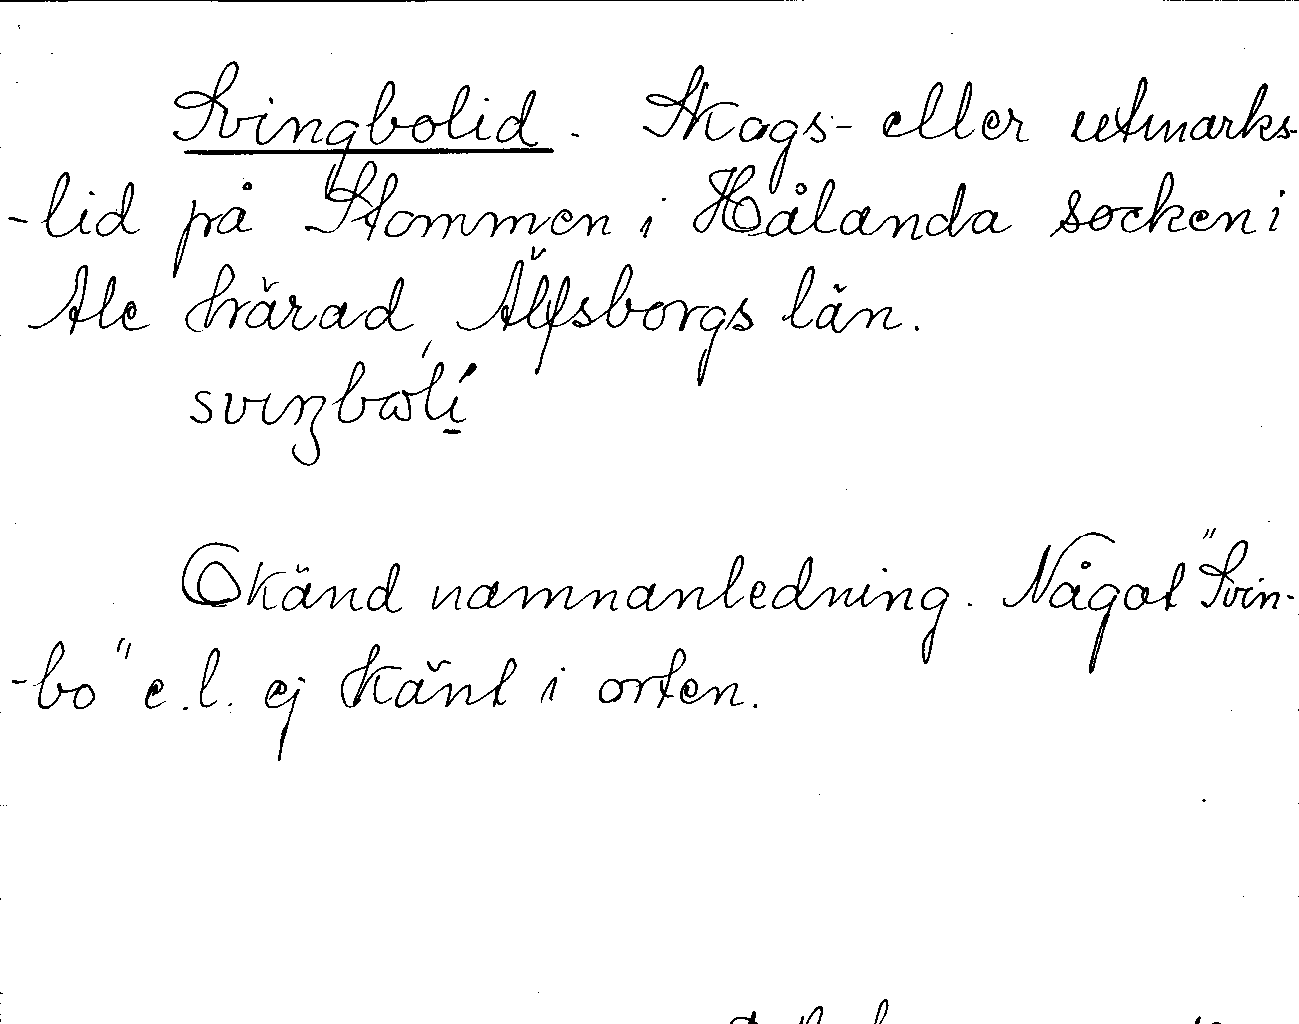 Svingbolid. Skogs- eller utmarks-
-lid på Stommen i Hålanda socken i
Ale härad, Älfsborgs län.
Okänd namnanledning. Något "Svin-
-bo" e.l. ej känt i orten.